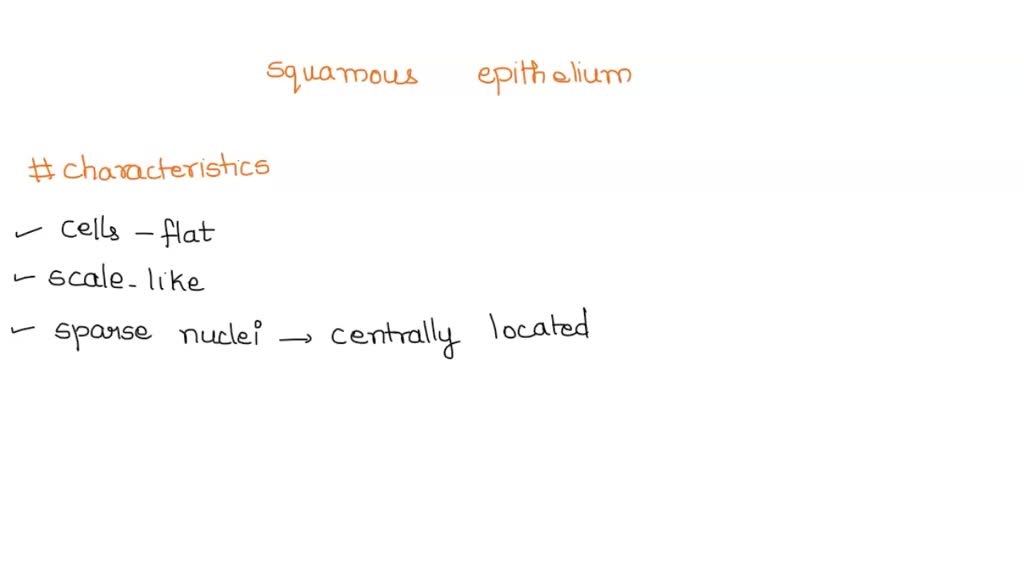 squamous epithelium
# characteristics
✓ cells - flat
✓ scale-like
✓ sparse nuclei → centrally located